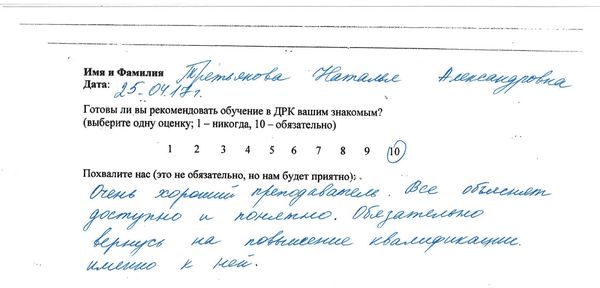 Имя и Фамилия Третьякова Наталья Александровна
Дата: 25.04.17г.
Готовы ли вы рекомендовать обучение в ДРК вашим знакомым?
(выберите одну оценку; 1 – никогда, 10 – обязательно)
1 2 3 4 5 6 7 8 9 10
Похвалите нас (это не обязательно, но нам будет приятно):
Очень хороший преподаватель. Все объясняет
доступно и понятно. Обязательно
вернусь на повышение квалификации
именно к ней.